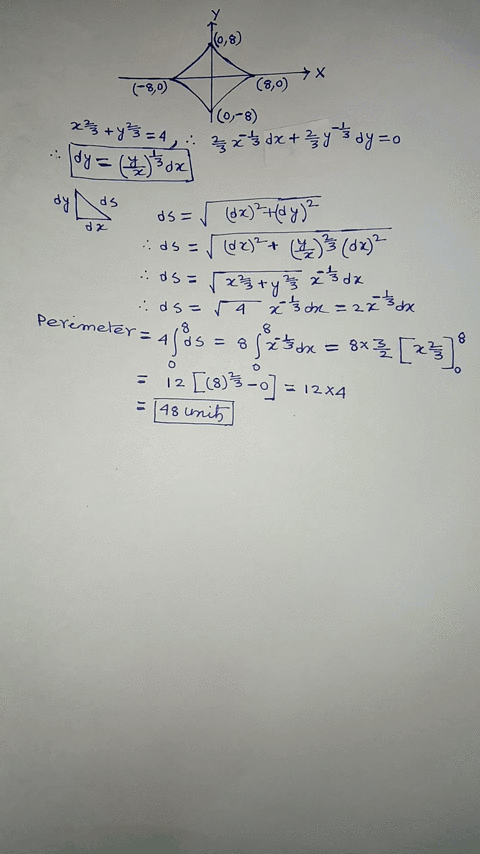 Y
(0,8)
(-8,0) (8,0) X
(0,-8)
x^2/3 + y^2/3 = 4, ∴ 2/3 x^-1/3 dx + 2/3 y^-1/3 dy = 0
∴ dy = (y/x)^1/3 dx
dy ds dx
ds = √(dx)^2+(dy)^2
∴ ds = √(dx)^2 + (y/x)^2/3 (dx)^2
∴ ds = √x^2/3 + y^2/3 x^-1/3 dx
∴ ds = √4 x^-1/3 dx = 2x^-1/3 dx
Perimeter = 4∫_0^8 ds = 8∫_0^8 x^-1/3 dx = 8×3/2 [x^2/3]_0^8
= 12 [(8)^2/3 - 0] = 12×4
= 48 units